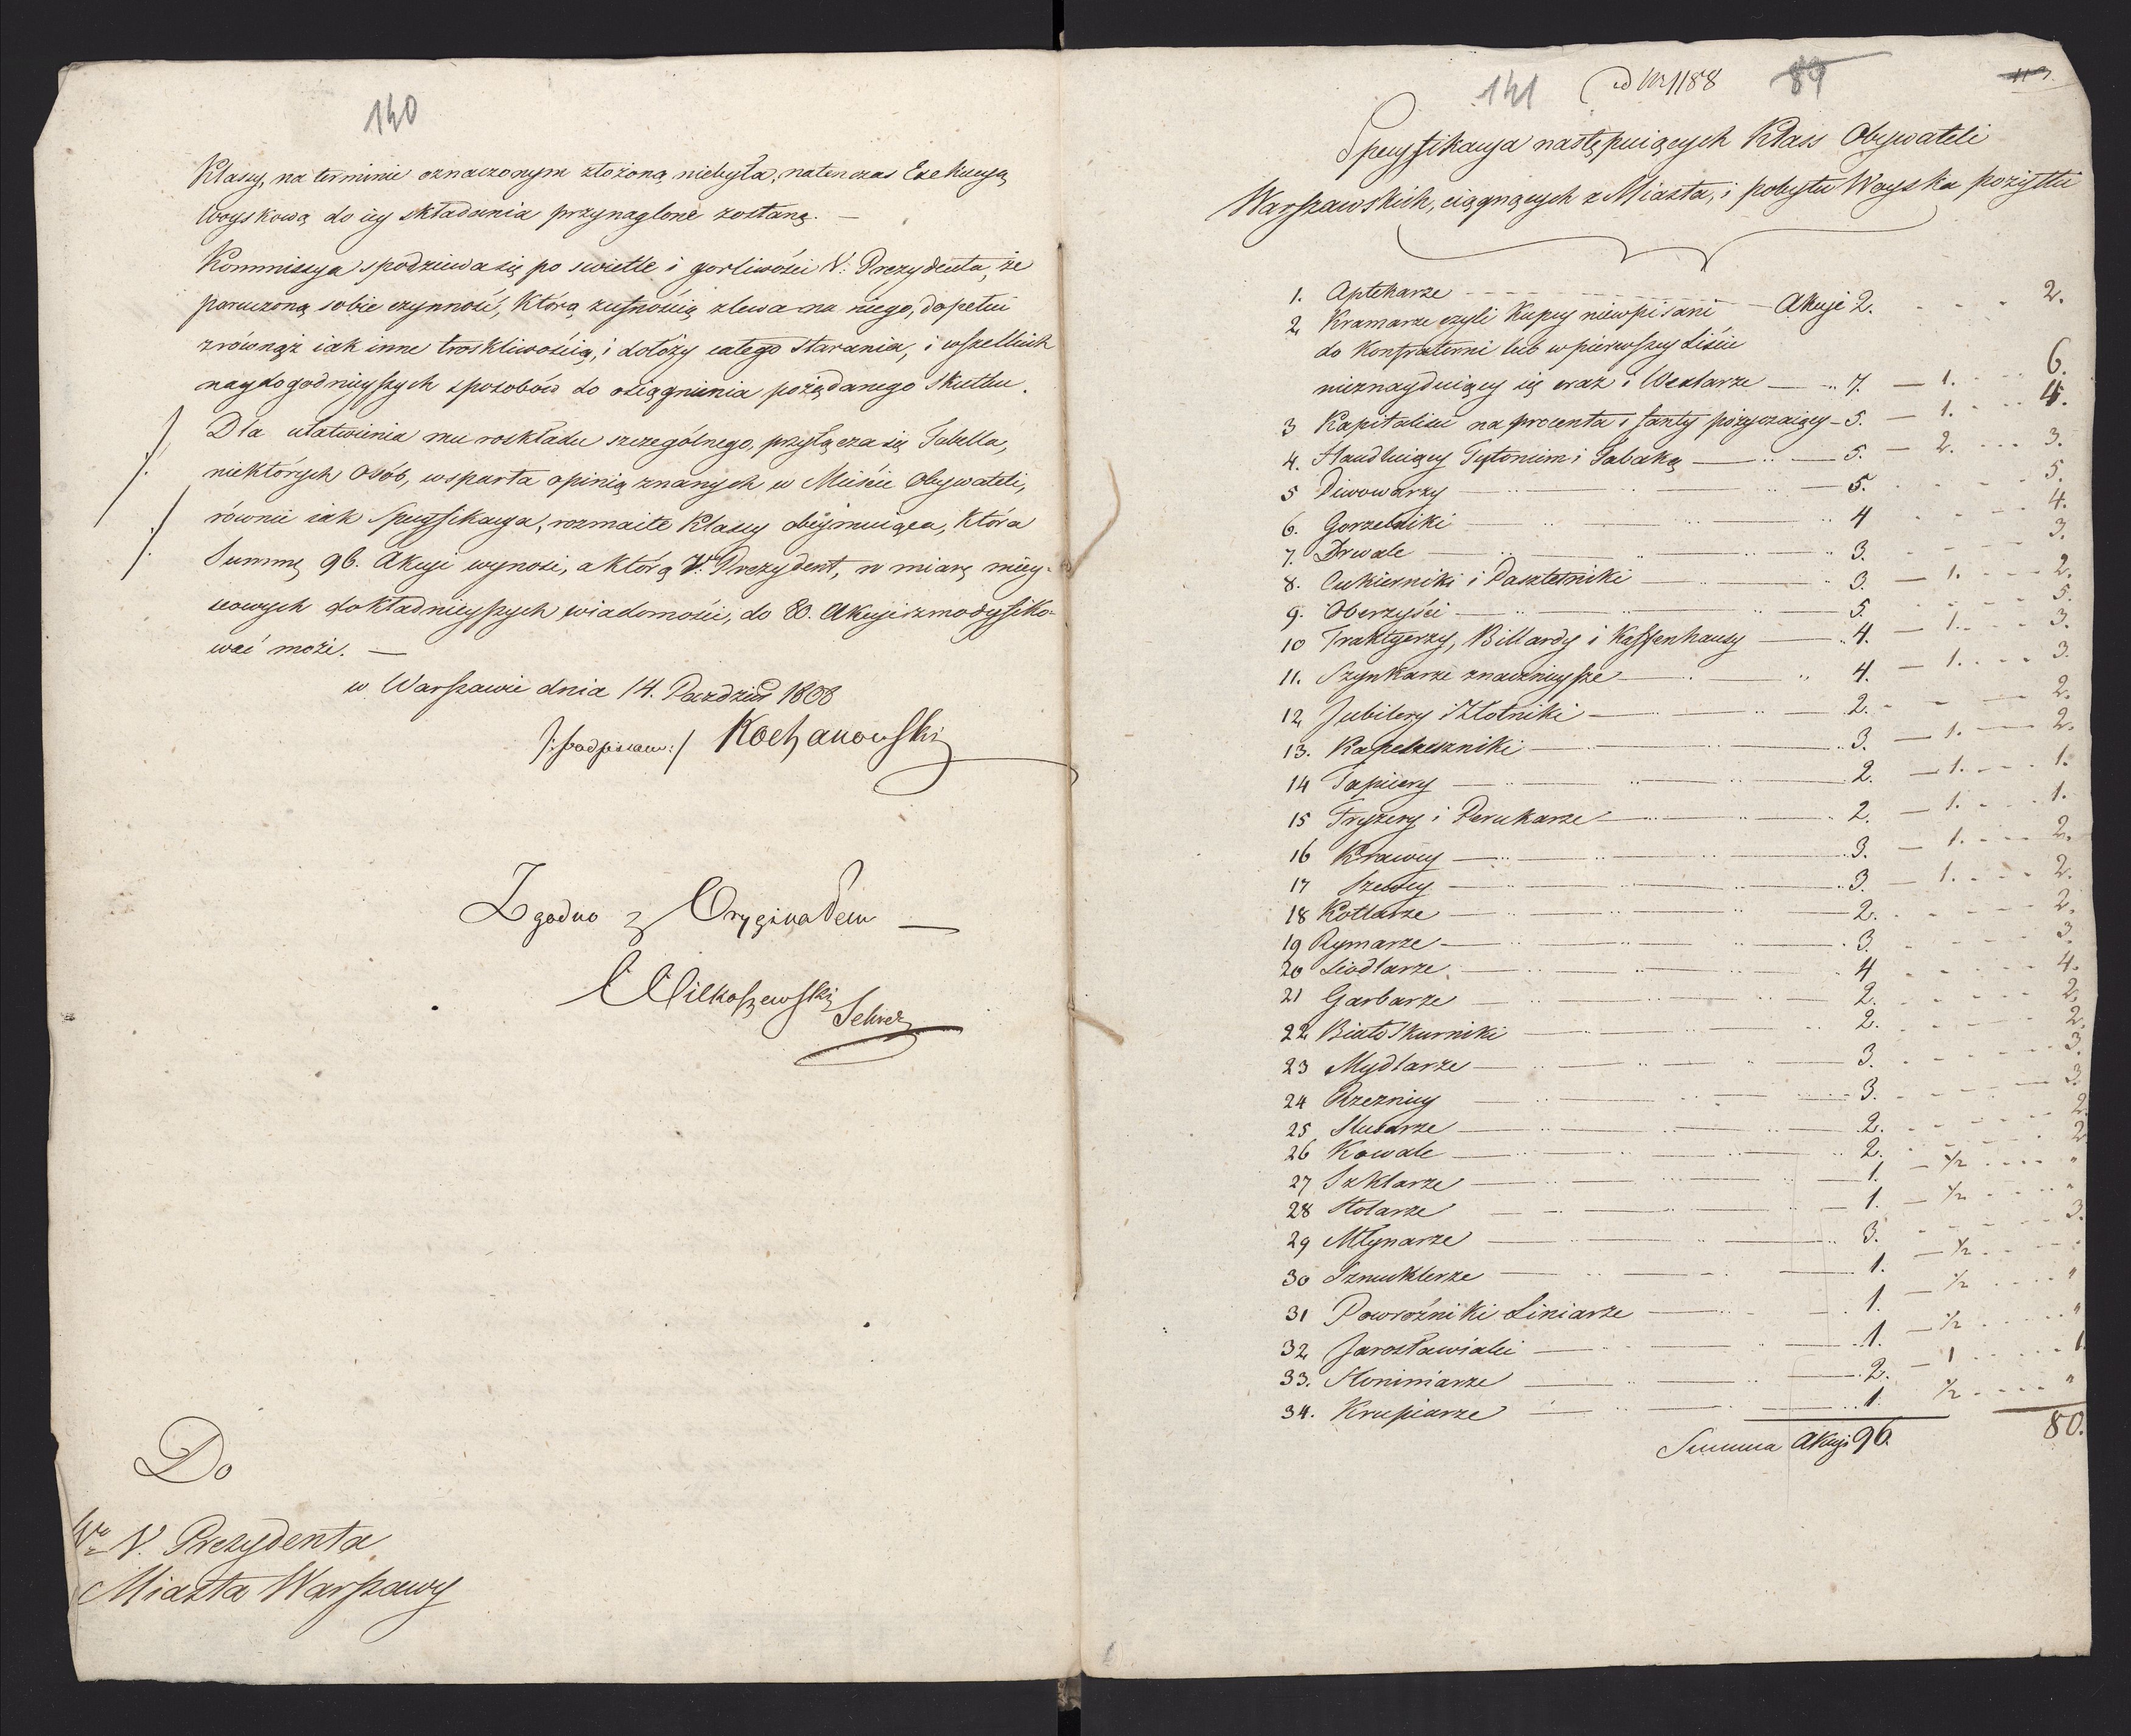 140
Klassy, na terminie oznaczonym złożoną niebyła, natenczas Exekucyą
woyskową do iey składania przynaglone zostaną. —
Kommissya spodziewa się po swietle i gorliwości V: Prezydenta, że
poruczoną sobie czynność, którą z ufnością zlewa na niego, dopełni
z równąż iak inne troskliwością, i dołoży całego starania, i wszelkich
naydogodnieyszych sposobów do osiągnienia pożądanego skutku.
Dla ułatwienia mu roskładu szczególnego, przyłącza się Tabella,
niektórych Osób, wsparta opinią znanych w Mieście Obywateli,
równie iak Specyfikacya, rozmaite Klassy obeymuiąca, która
Summę 96. Akcyi wynosi, a którą V. Prezydent, w miarę miey-
scowych dokładnieyszych wiadomości, do 80. Akcyi zmodyfiko-
wać może. —
w Warszawie dnia 14. Pazdzier 1808
/:podpisano:/ Kochanowski
Zgodno z Oryginałem —
Wilkoszewski
Sekret
Do
V. Prezydenta
Miasta Warszawy
141 ad Nr 1188 89 113
Specyfikacya następuiących Klass Obywateli
Warszawskich, ciągnących z Miasta, i pobytu Woyska pożytki
1. Aptekarze - - - Akcyi 2. - - - 2.
2 Kramarze czyli Kupcy niewpisani
do Konfraterni lub w pierwszey Liście
nieznayduiący się oraz i Wexlarze — 7. — 1. - - 6.
3 Kapitaliści na procenta i fanty pożyczaiący - 5. — 1. - - 4.
4. Handluiący Tytoniem i Tabaką — 5. — 2. - - - 3.
5 Piwowarzy — 5. - - - 5.
6. Gorzelniki — 4 - - - 4.
7. Drwale — 3. - - - 3.
8. Cukierniki i Pasztetniki — 3. — 1. - - - 2.
9. Oberzyści — 5. - - - 5.
10 Traktyerzy, Billardy i Kaffenhausy — 4. — 1. - - - 3.
11. Szynkarze znacznieysze — 4. — 1. - - - 3.
12 Jubilery i Złotniki — 2. - - - 2.
13. Kapeluszniki — 3. — 1. — 2.
14 Tapicery — 2. — 1. - - - 1.
15 Fryzery i Perukarze — 2. — 1. - - - 1.
16 Krawcy — 3. — 1. - - - 2.
17 Szewcy — 3. — 1. - - - 2.
18 Kotlarze — 2. - - - 2.
19 Rymarze — 3. - - - 3.
20 Siodlarze — 4 - - - 4.
21 Garbarze — 2. - - - 2.
22 Białoskurniki — 2. - - - 2.
23 Mydlarze — 3. - - - 3.
24 Rzeznicy — 3. - - - 3.
25 Slusarze — 2. - - - 2.
26 Kowale — 2. - - - 2.
27 Szklarze — 1. — 1/2 - - - "
28 Stolarze — 1. — 1/2 - - - "
29 Młynarze — 3. - - - 3.
30 Szmuklerze — 1. — 1/2 - - - "
31 Powroźniki Liniarze — 1. — 1/2 - - - "
32 Jarosławialei — 1. — 1/2 - - - "
33. Słoniniarze — 2. — 1 - - - 1
34. Krupiarze — 1. 1/2 - - - "
Summa Akcyi 96. 80.